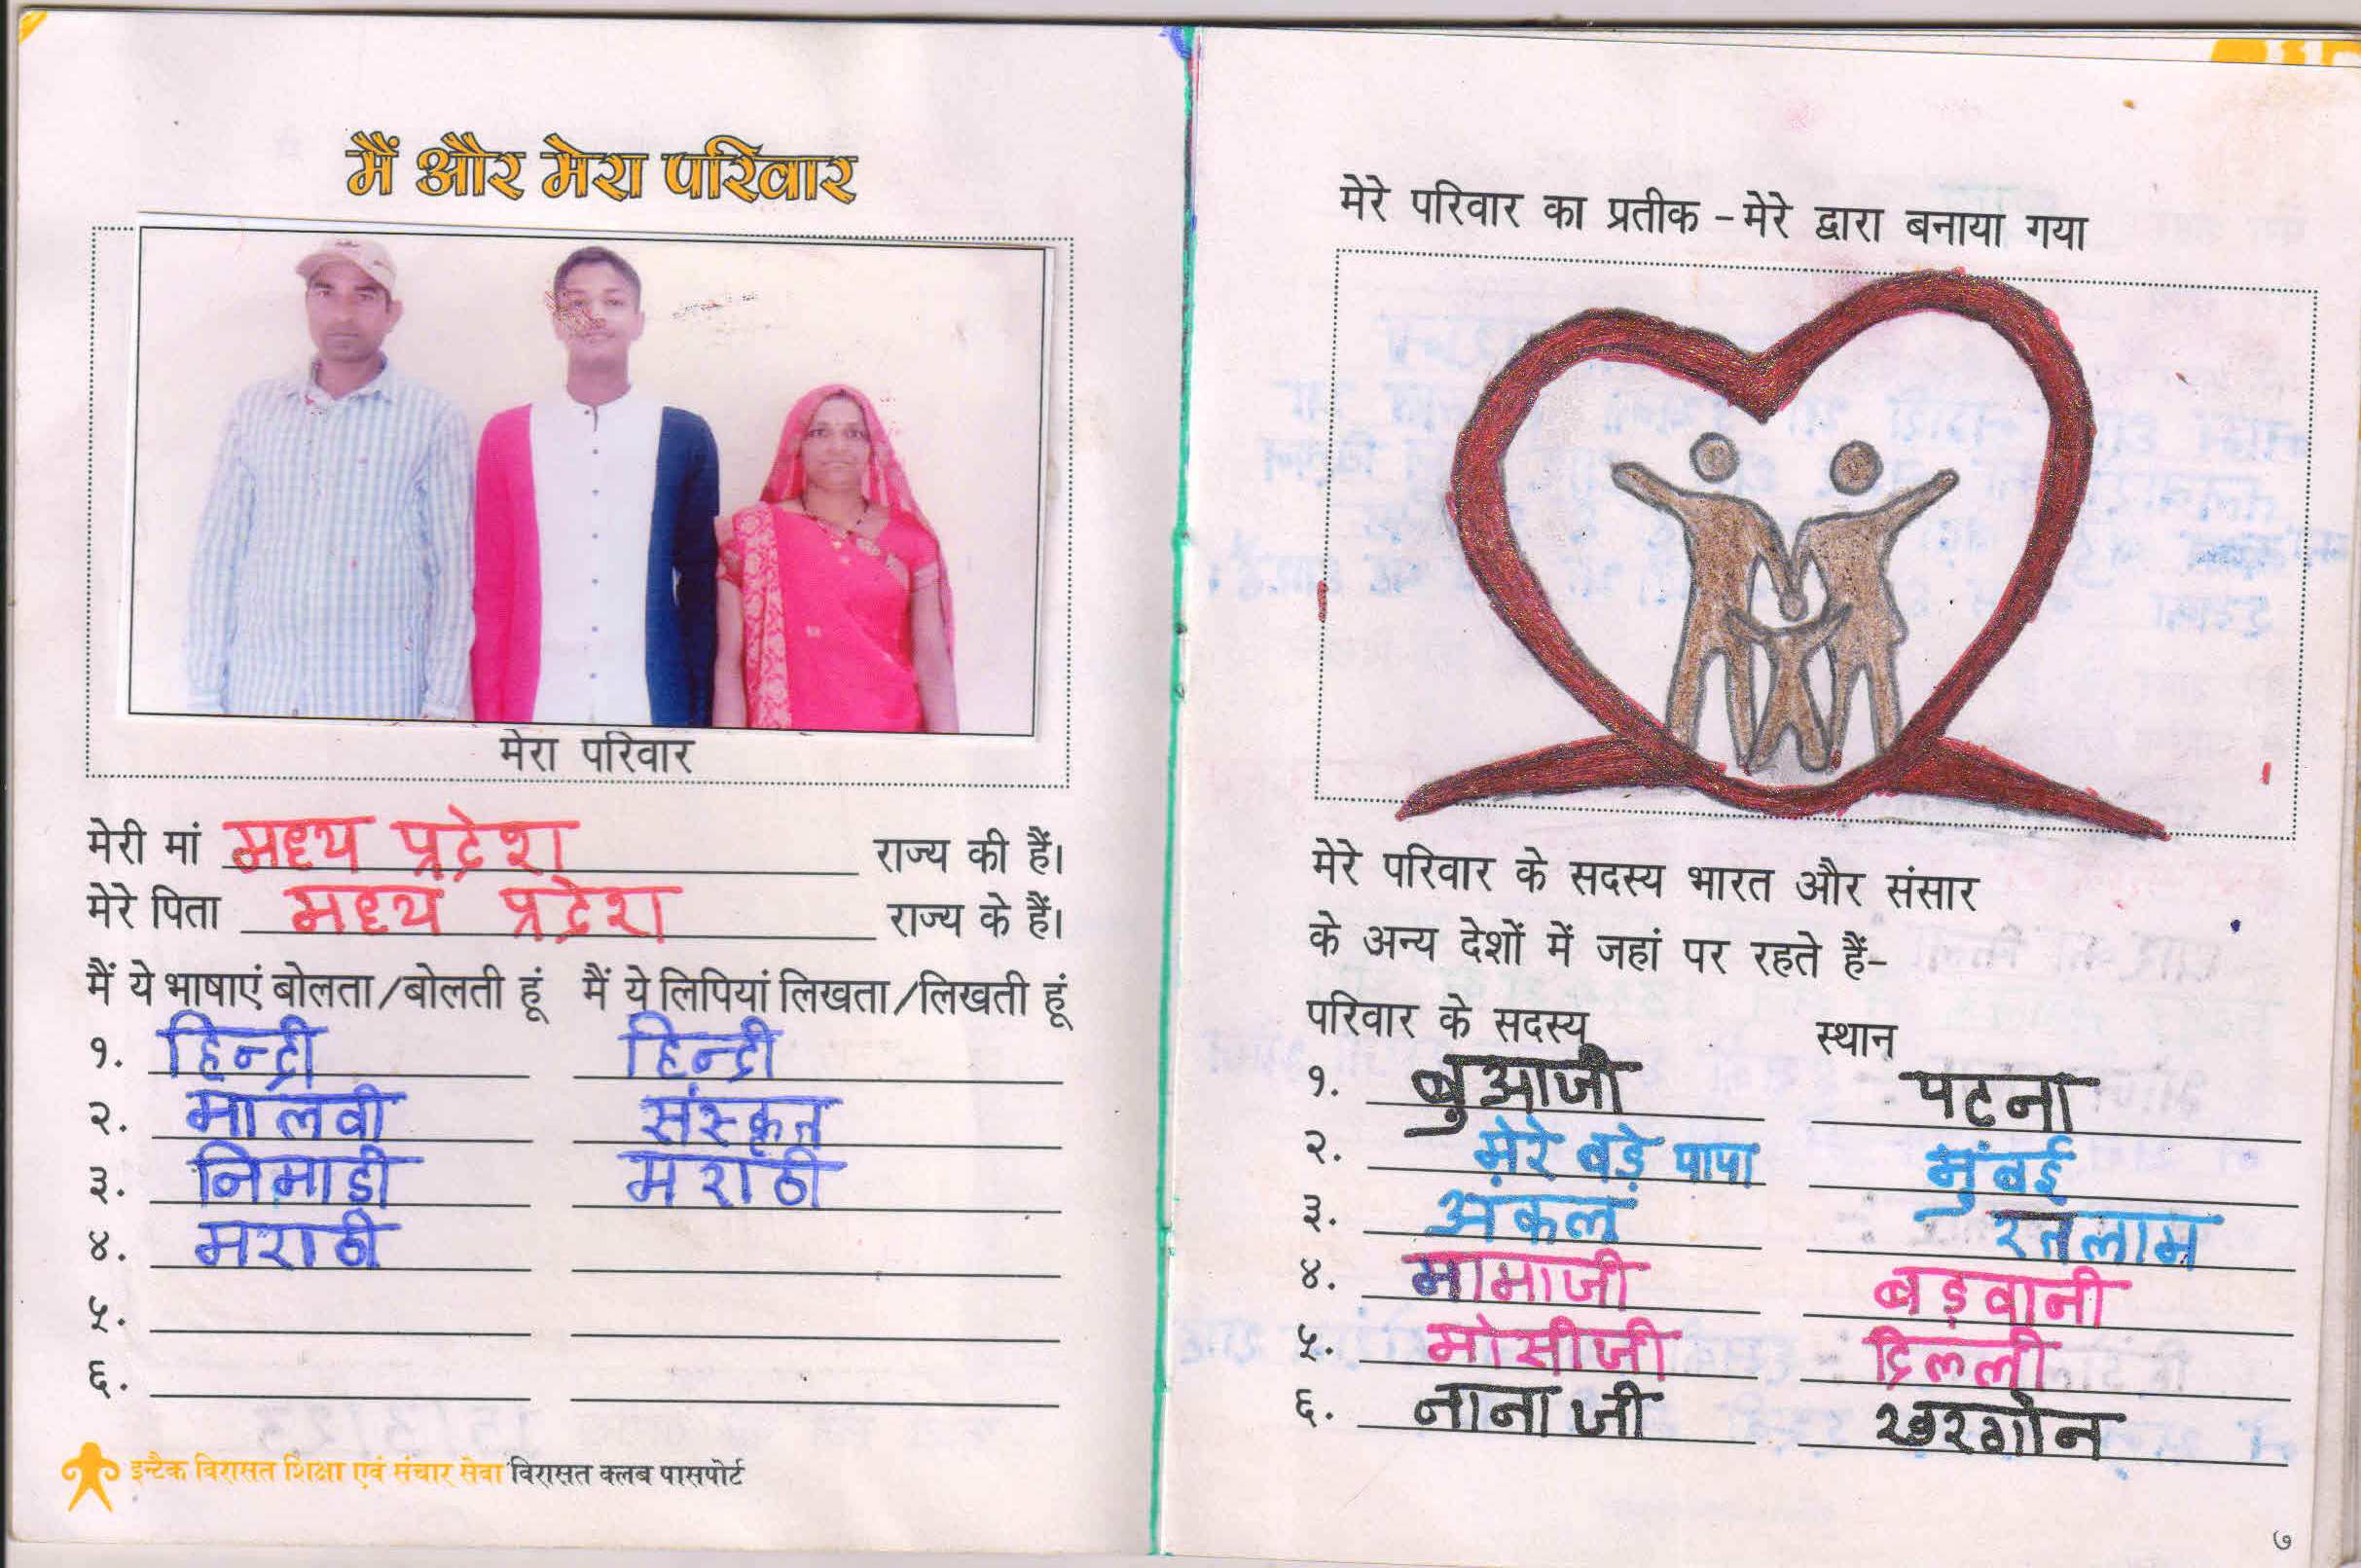 मैं और मेरा परिवार
मेरा परिवार
मेरी मां मध्य प्रदेश राज्य की हैं।
मेरे पिता मध्य प्रदेश राज्य के हैं।
मैं ये भाषाएं बोलता/बोलती हूं मैं ये लिपियां लिखता/लिखती हूं
१. हिन्दी हिन्दी
२. मालवी संस्कृत
३. निमाडी मराठी
४. मराठी
५.
६.
इन्टैक विरासत शिक्षा एवं संचार सेवा विरासत क्लब पासपोर्ट
मेरे परिवार का प्रतीक - मेरे द्वारा बनाया गया
मेरे परिवार के सदस्य भारत और संसार
के अन्य देशों में जहां पर रहते हैं-
परिवार के सदस्य स्थान
१. बुआजी पटना
२. मेरे बड़े पापा मुंबई
३. अंकल रतलाम
४. मामाजी बड़वानी
५. मोसीजी दिल्ली
६. नानाजी खरगोन
७